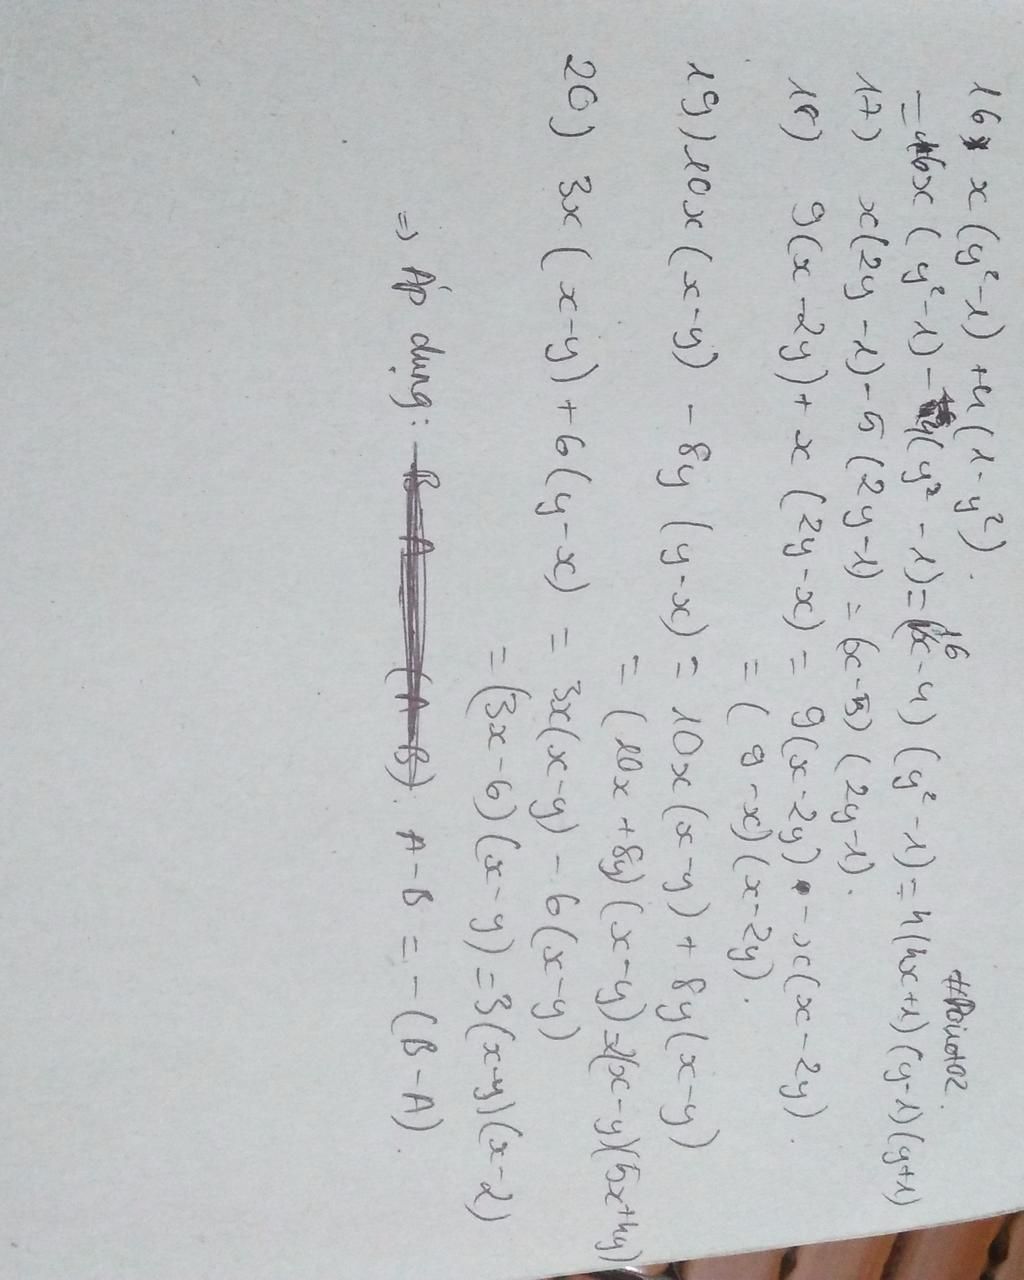 16x x(y²-1) + 4(1-y²).
#Point02.
= 16x(y²-1) - 4(y²-1) = (16x-4)(y²-1) = 4(4x+1)(y-1)(y+1)
17) x(2y-1) - 5(2y-1) = (x-5)(2y-1).
18) 9(x-2y) + x(2y-x) = 9(x-2y) - x(x-2y).
= (9-x)(x-2y).
19) 10x(x-y) - 8y(y-x) = 10x(x-y) + 8y(x-y)
= (10x+8y)(x-y) = 2(x-y)(5x+4y)
20) 3x(x-y) + 6(y-x) = 3x(x-y) - 6(x-y)
= (3x-6)(x-y) = 3(x-y)(x-2)
=> Áp dụng: A-B = -(B-A).